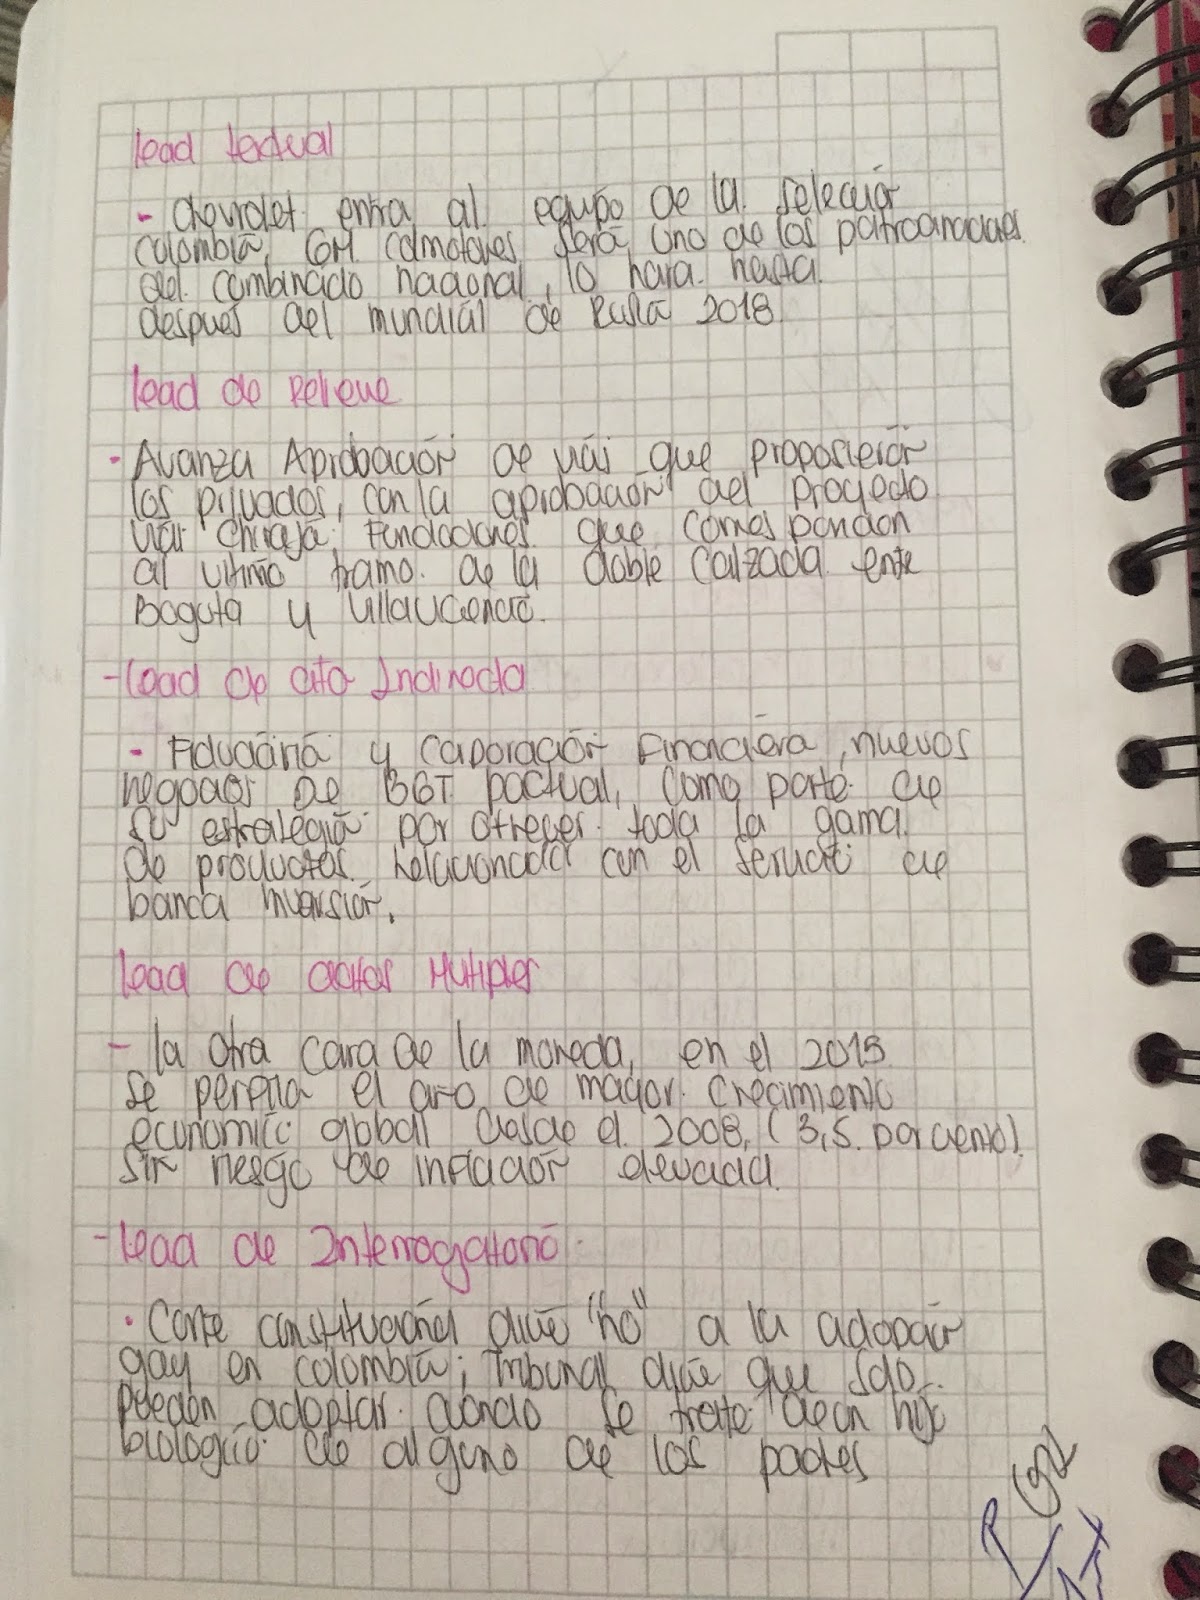 lead textual
- Chevrolet entra al equipo de la selección
Colombia, GM Colmotores será uno de los patrocinadores
del combinado nacional, lo hara hasta
despues del mundial de Rusia 2018
lead de Relieve
- Avanza Aprobación de que propusieron
los privados, con la aprobación del proyecto
vial Chirajá, Fundadores que corresponden
al ultimo tramo de la doble calzada ente
Bogota y Villavicencio.
- lead de cita Indirecta
- Fiduciaria y Corporación Financiera, nuevos
negocios De BGT pactual, como parte de
su estrategia por ofrecer toda la gama
de productos relacionados con el servicio de
banca inversión.
lead de Multiples
- la otra cara de la moneda, en el 2015
se el año de mayor crecimiento
economico global desde el 2008, (3,5 por ciento)
sin riesgo de inflación elevada.
- lead de Interrogatorio
- Corte constitucional dice "no" a la adopción
gay en Colombia; Tribunal dice que solo
pueden adoptar cuando se trate de un hijo
biologico de alguno de los padres